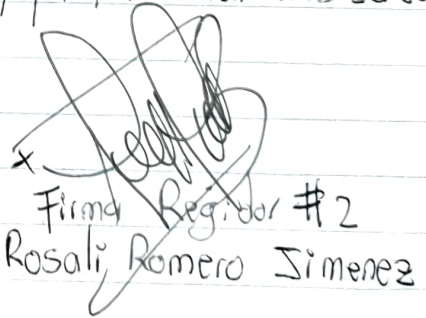 x
Firma Regidor #2
Rosali Romero Jimenez